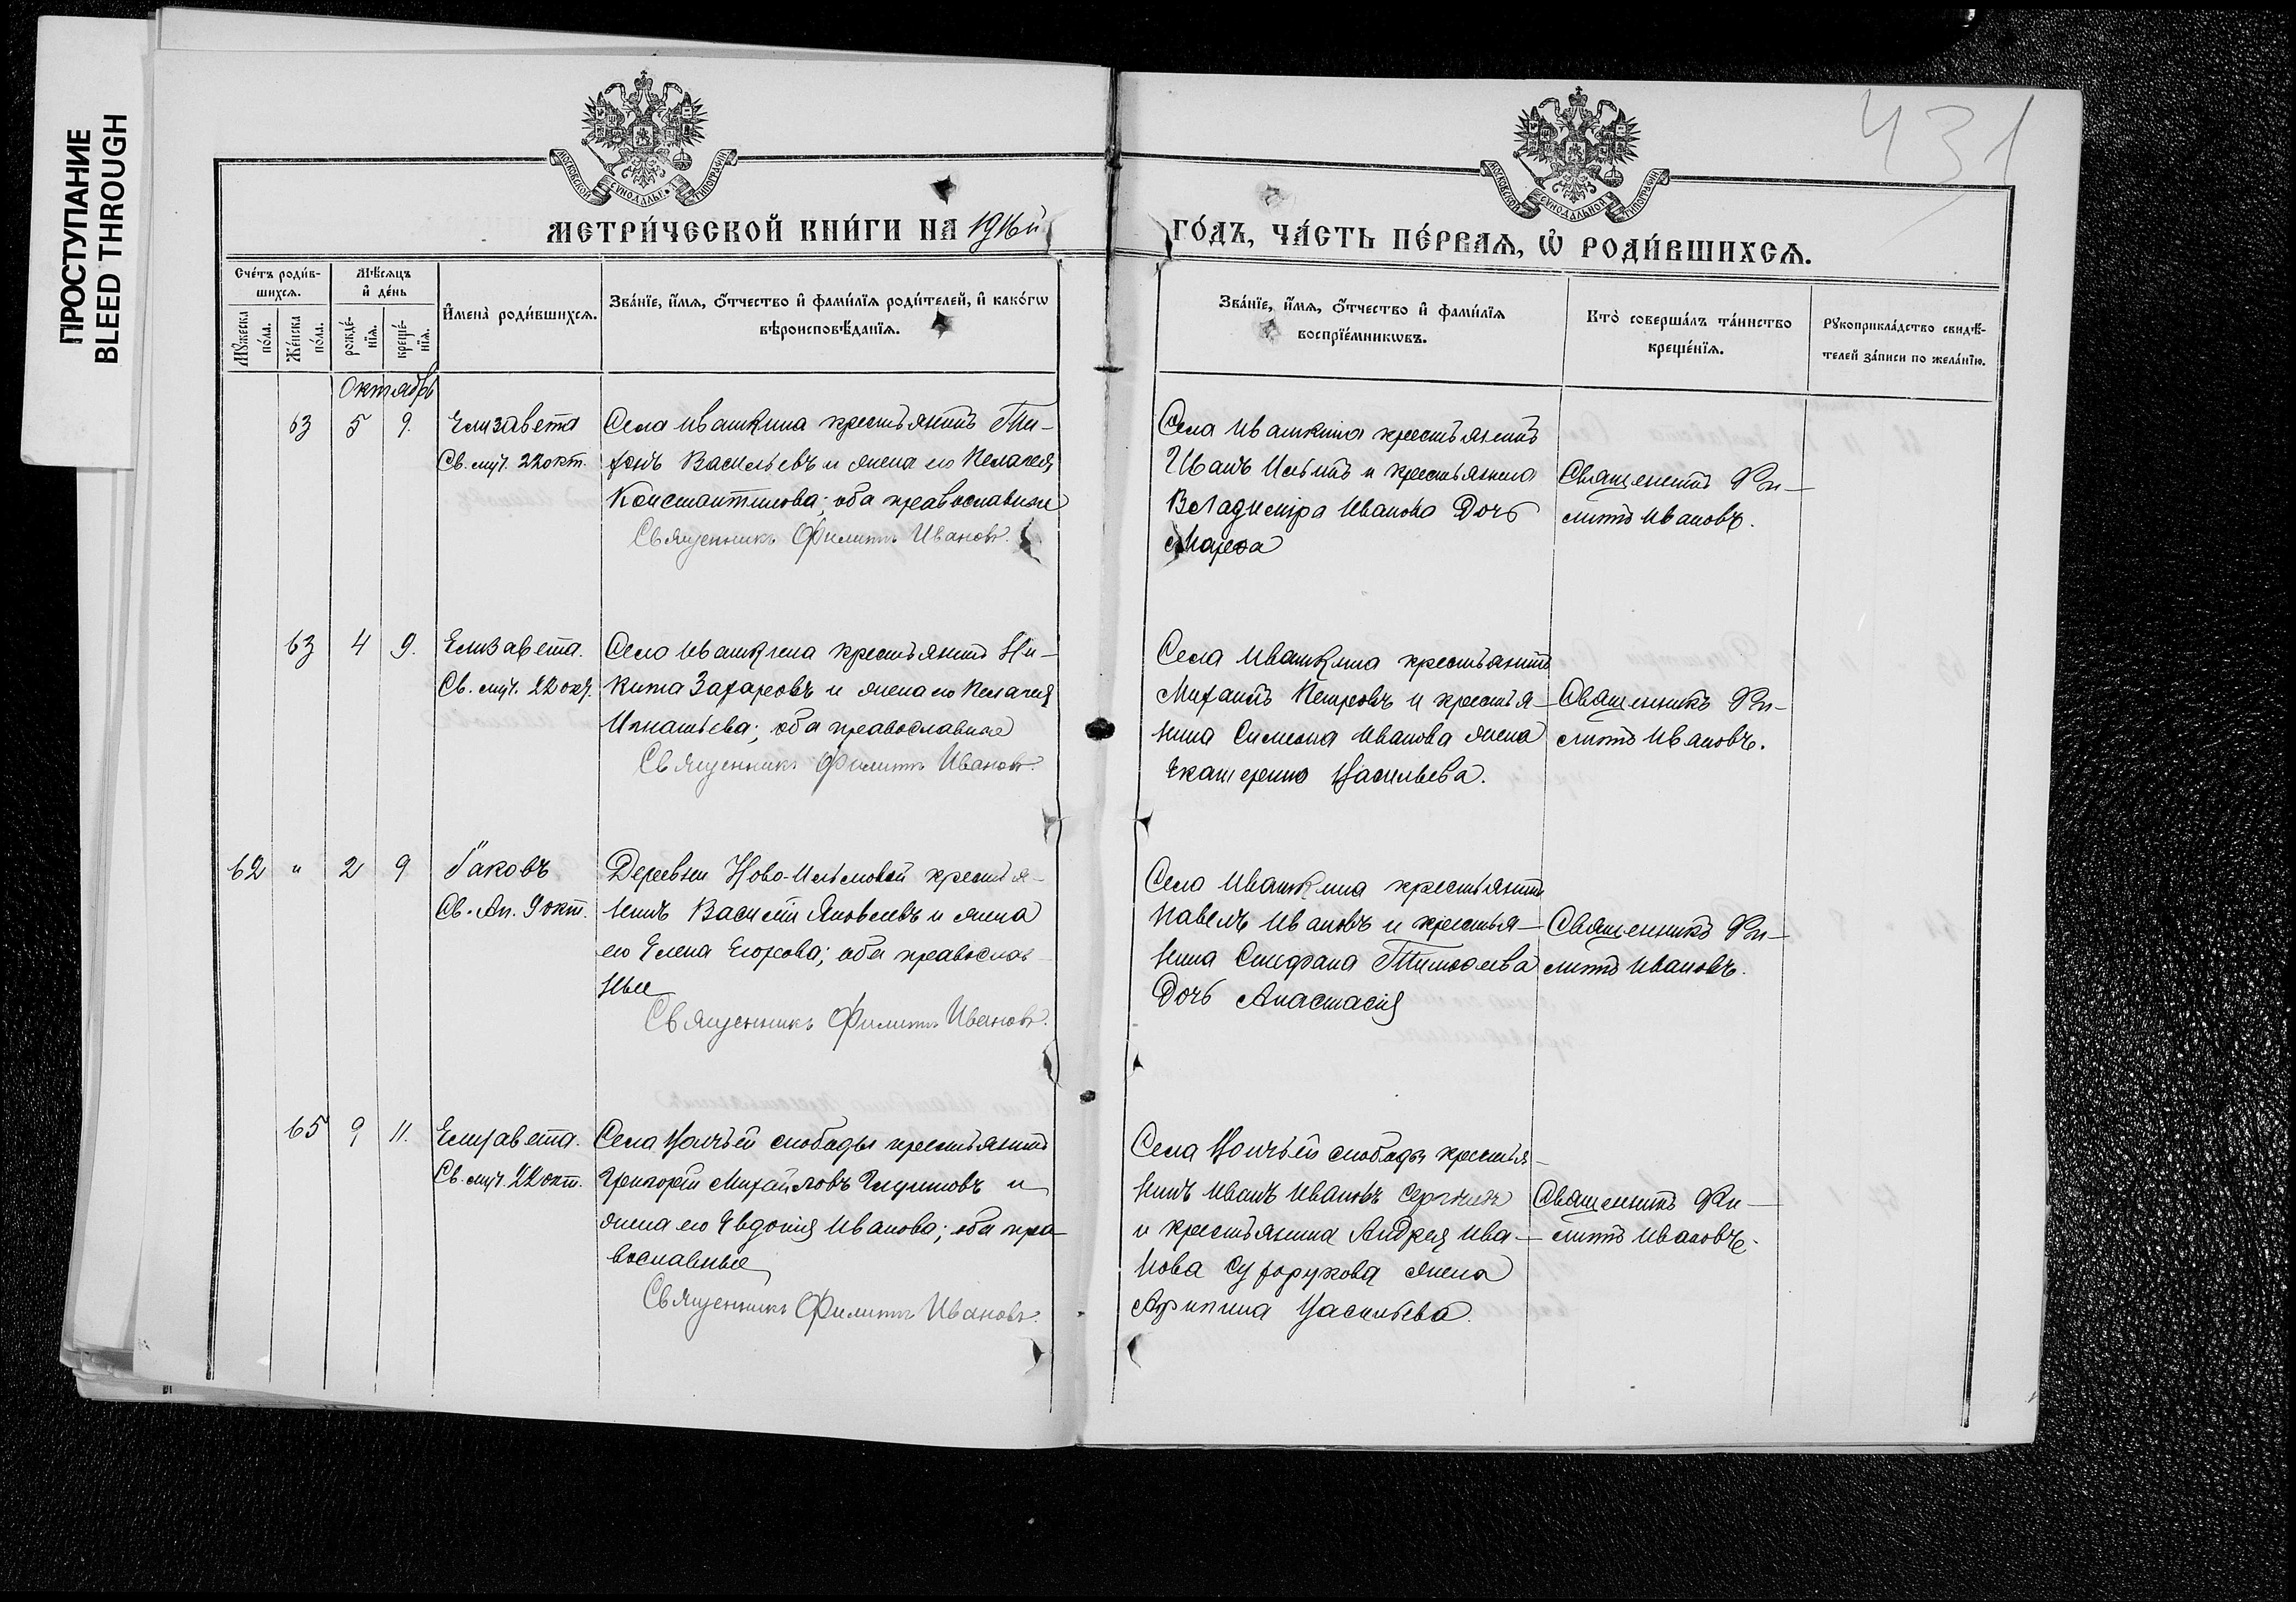 ПРОСТУПАНИЕ
BLEED THROUGH
431
МОСКОВСКОЙ СѴНОДАЛЬНОЙ ТИПОГРАФІИ
МОСКОВСКОЙ СѴНОДАЛЬНОЙ ТИПОГРАФІИ
МЕТРИ́ЧЕСКОЙ КНИ́ГИ НА 1916й
ГО́ДЪ, ЧА́СТЬ ПЕ́РВАѦ, Ѡ҆ РОДИ́ВШИХСѦ.
Сче́тъ роди́в-
шихсѧ.
Мꙋ́жеска по́ла.
Же́нска по́ла.
Мѣ́сѧцъ
и҆ де́нь
рожде́-
нїѧ.
креще́-
нїѧ.
И҆мена̀ роди́вшихсѧ.
Зва́нїе, и҆́мѧ, ѻ҆́тчество и҆ фами́лїѧ роди́телей, и҆ како́гѡ
вѣроисповѣ́данїѧ.
Зва́нїе, и҆́мѧ, ѻ҆́тчество и҆ фами́лїѧ
воспрїе́мникѡвъ.
Кто̀ соверша́лъ та́инство
креще́нїѧ.
Рꙋкоприкла́дство свидѣ́-
телей за́писи по жела́нїю.
Октябрь
63 5 9. Елизавета
Св. муч. 22 окт.
Села Ивашкина крестьянинъ Ти-
хонъ Васильевъ и жена его Пелагея
Константинова; оба православные
Священникъ Филиппъ Ивановъ.
Села Ивашкина крестьянинъ
Иванъ Ильинъ и крестьянина
Владиміра Иванова дочь
Марѳа
Священникъ Фи-
липпъ Ивановъ.
63 4 9. Елизавета.
Св. муч. 22 окт.
Село Ивашкина крестьянинъ Ни-
кита Захаровъ и жена его Пелагея
Игнатьева; оба православные
Священникъ Филиппъ Ивановъ.
Села Ивашкина крестьянинъ
Михаилъ Петровъ и крестья-
нина Симеона Иванова жена
Екатерина Васильева.
Священникъ Фи-
липпъ Ивановъ.
62 " 2 9 Іаковъ
Св. Ап. 9 окт.
Деревни Ново-Ильмовой крестья-
нинъ Василій Яковлевъ и жена
его Елена Егорова; оба православ-
ные
Священникъ Филиппъ Ивановъ.
Село Ивашкина крестьянинъ
Павелъ Ивановъ и крестья-
нина Стефана Тимоѳеева
дочь Анастасія
Священникъ Фи-
липпъ Ивановъ.
65 9 11. Елизавета.
Св. муч. 22 окт.
Села Волчьей слободы крестьянинъ
Григорій Михайловъ и
жена его Евдокія Иванова; оба пра-
вославные
Священникъ Филиппъ Ивановъ.
Села Волчьей слободы крестья-
нинъ Иванъ Ивановъ
и крестьянина Андрея Ива-
нова Сухорукова жена
Агрипина Васильева.
Священникъ Фи-
липпъ Ивановъ.